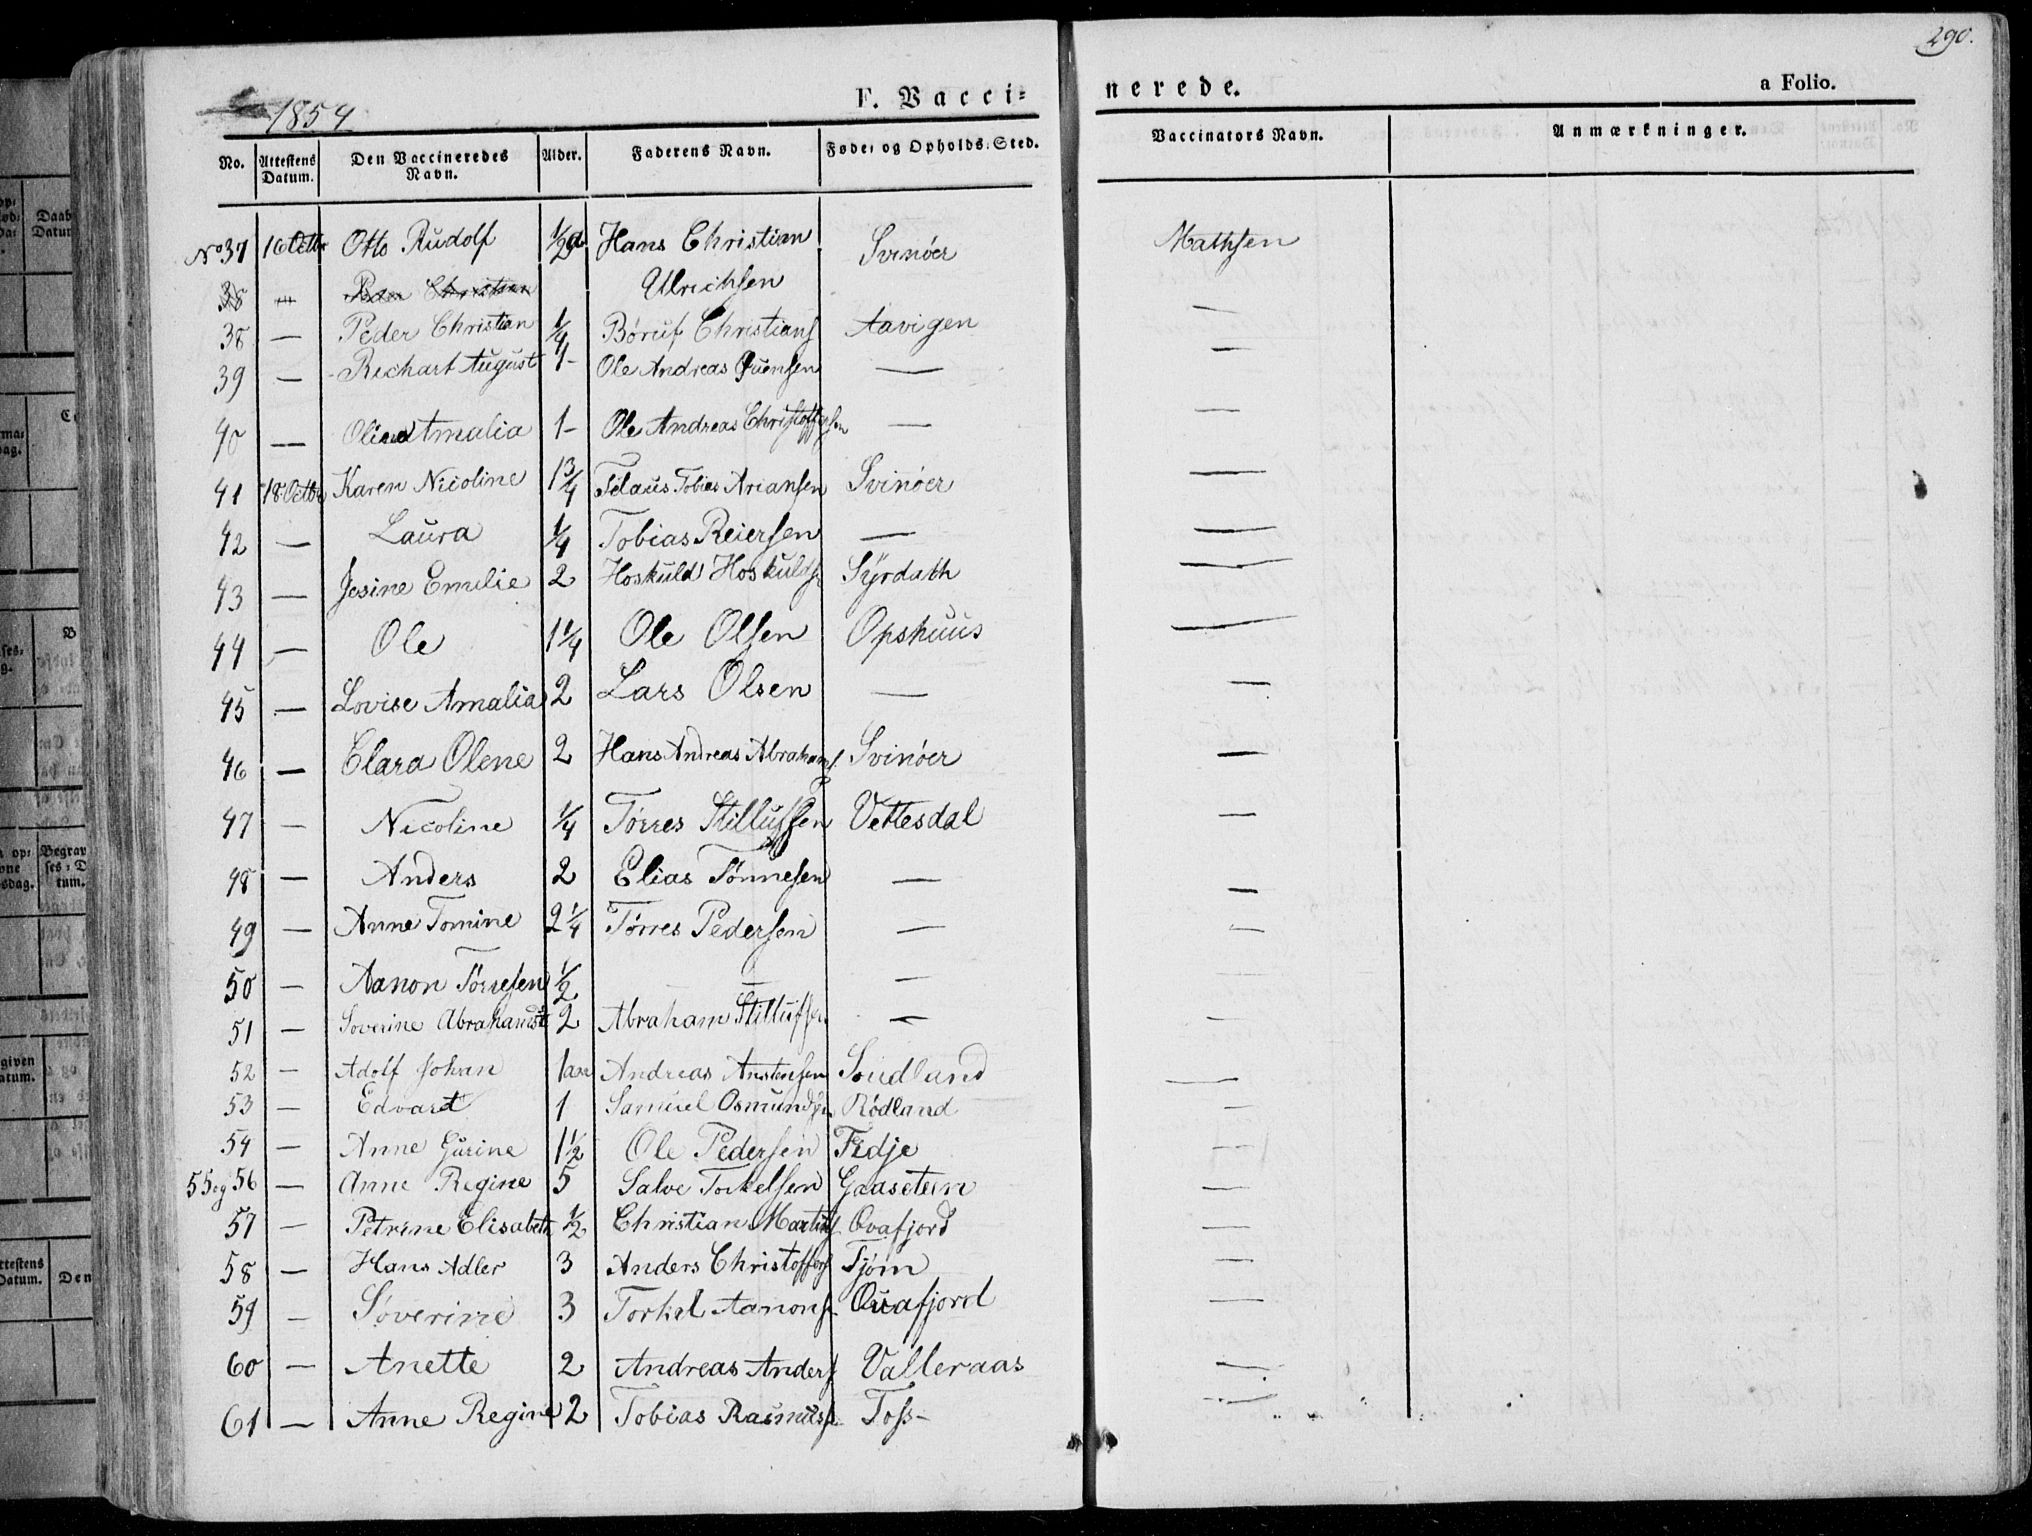 290.
1854
F. Vacci=
nerede.
a Folio.
No. Attestens Datum. Den Vaccineredes Navn. Alder. Faderens Navn. Føde- og Opholds-Sted. Vaccinators Navn. Anmærkninger.
No 37 16 Octbr Otto Rudolf 1/2 Hans Christian Ulrichsen Svinöer Mathsen
38 — Christian
38 — Peder Christian 1/4 Christians Aavigen —
39 — Richart August 1- Ole Andreas —
40 — Amalia 1- Ole Andreas Christoffersen — —
41 18 Octbr Karen Nicoline 1 3/4 Tobias Ariansen Svinöer —
42 — Laura 1/4 Tobias Reiersen — —
43 — Jesine Emilie 2 Hoskuld Hoskulds Syrdath —
44 — Ole 1 1/4 Ole Olsen Opshuus —
45 — Lovise Amalia 2 Lars Olsen — —
46 — Clara Olene 2 Hans Andreas Abrahams. Svinöer —
47 — Nicoline 1/4 Törres Stillufsen Vettesdal —
48 — Anders 2 Elias Tönnesen — —
49 — Anne Tomine 2 1/4 Törres Pedersen — —
50 — Aanon Törresen 1/2 — — —
51 — Soverine Abrahamsdt 2 Abraham Stillufsen — —
52 — Adolf Johan 1 aar Andreas Anstensen —
53 — Edvard 1 Samuel Osmundsen Rödland —
54 — Anne Gurine 1 1/2 Ole Pedersen Fidje —
55 og 56 — Anne Regine 5 Salve Torkelsen Gaaseteen —
57 — Petrine Elisabeth 1/2 Christian Martins Qvafjord —
58 — Hans Adler 3 Anders Christoffers Tjöm —
59 — Söverine 3 Torkel Aanons Quafjord —
60 — Anette 2 Andreas Anders Valleraas —
61 — Anne Regine 2 Tobias Rasmuss Toss- —